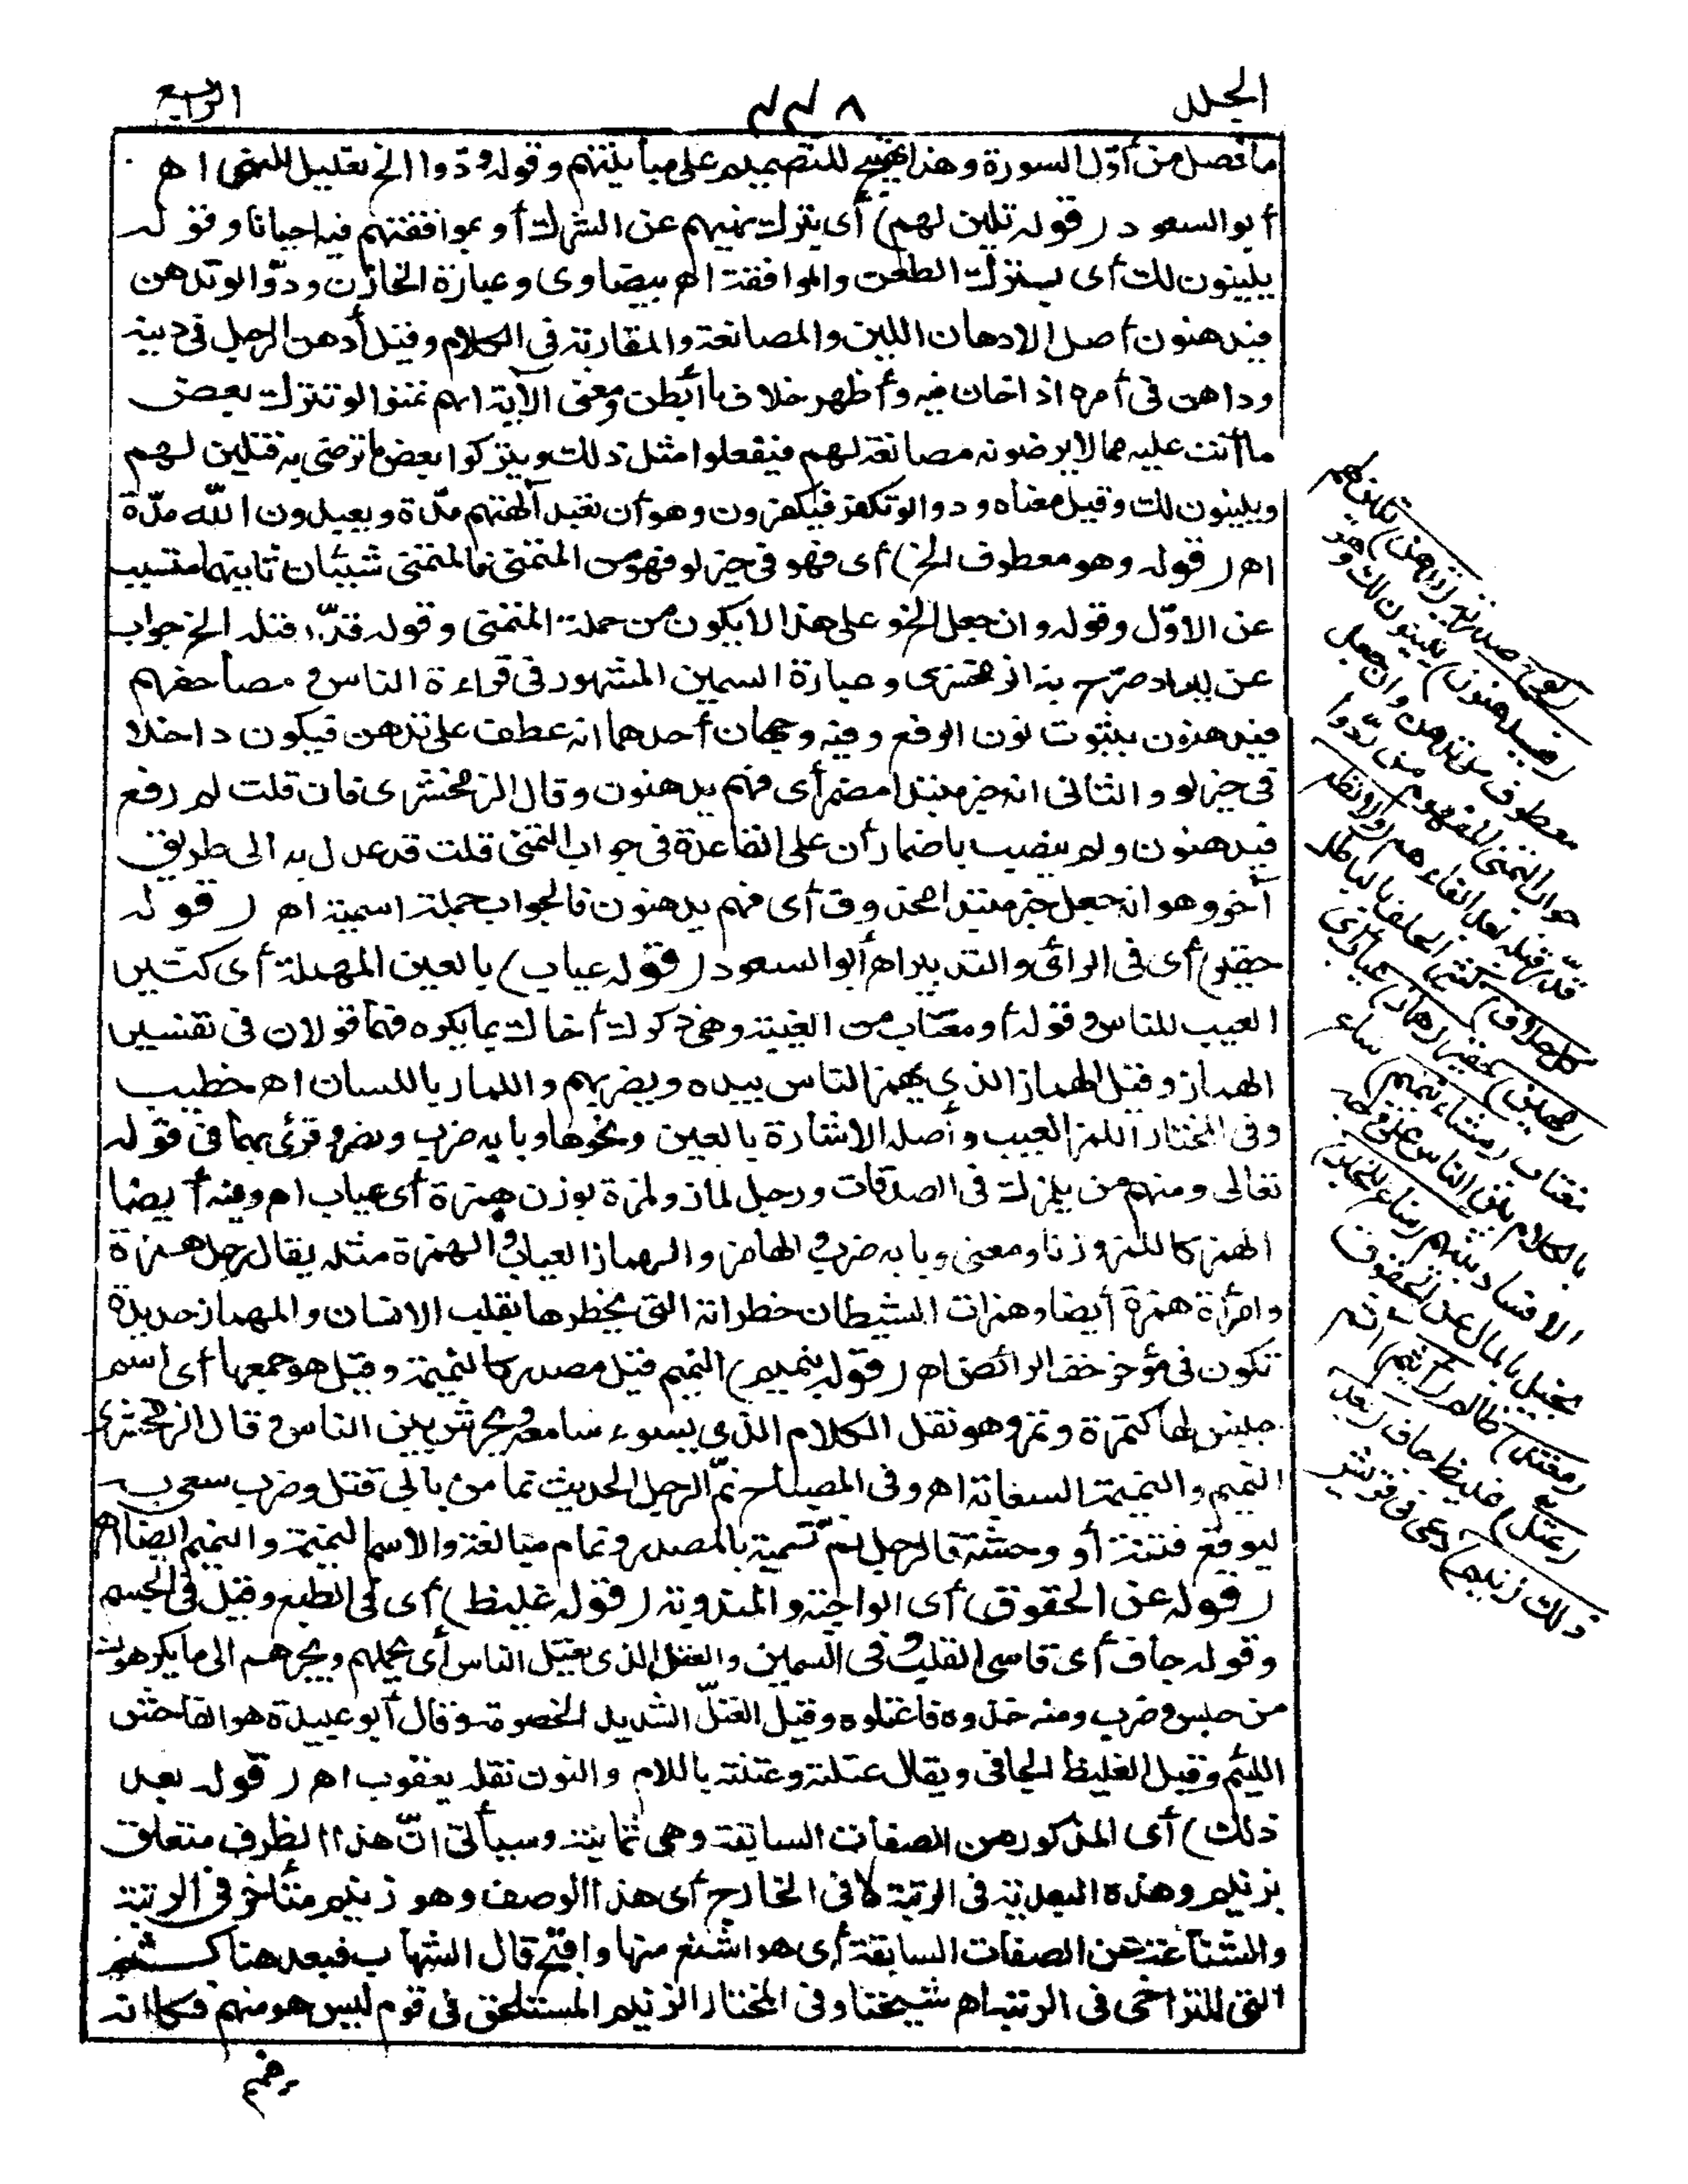 الجلد ٣٣٨ الرابع
ما فصل من أوّل السورة وهذا تهييج للتصميم على مباينتهم وقوله ودّوا الخ تعليل للنهى اه
أبو السعود (قوله تلين لهم) أى بترك نهيهم عن الشرك أو بموافقتهم فيه احيانا وقوله
يلينون لك أى بترك الطعن والموافقة اه بيضاوى وعبارة الخازن ودّوا لو تدهن
فيدهنون أصل الادهان اللين والمصانعة والمقاربة فى الكلام وقيل أدهن الرجل فى دينه
وداهن فى أمره اذا خان فيه وأظهر خلاف ما أبطن ومعنى الآية انهم تمنوا لو تترك بعض
ما أنت عليه مما لا يرضونه مصانعة لهم فيفعلوا مثل ذلك ويتركوا بعض ما ترضى به فتلين لهم
ويلينون لك وقيل معناه ودوا لو تكفر فيكفرون وهو أن تعبد آلهتهم مدّة ويعبدون الله مدّة
اه (قوله وهو معطوف الخ) أى فهو فى حيز لو فهو من المتمنى فالمتمنى شيئان ثانيهما متسبب
عن الاوّل وقوله وان جعل الخ وعلى هذا لا يكون من جملة المتمنى وقوله قدّر قبله الخ جواب
عن ايراد صرّح به الزمخشرى وعبارة السمين المشهور فى قراءة الناس ومصاحفهم
فيدهنون بثبوت نون الرفع وفيه وجهان أحدهما انه عطف على تدهن فيكون داخلا
فى حيز لو والثانى انه خبر مبتدا مضمر أى فهم يدهنون وقال الزمخشرى فان قلت لم رفع
فيدهنون ولم ينصب باضمار أن على القاعدة فى جواب التمنى قلت قد عدل به الى طريق
آخر وهو انه جعل خبر مبتدا محذوف أى فهم يدهنون فالجواب جملة اسمية اه (قوله
حقير) أى فى الرائ والتدبير اه أبو السعود (قوله عياب) بالعين المهملة أى كثير
العيب للناس وقوله أو مغتاب من الغيبة وهى ذكرك أخاك بما يكره فهما قولان فى تفسير
الهماز وقيل الهماز الذى يهمز الناس بيده ويضربهم واللماز باللسان اه خطيب
وفى المختار اللمز العيب وأصله الاشارة بالعين ونحوها وبابه ضرب ونصر وقرئ بهما فى قوله
تعالى ومنهم من يلمزك فى الصدقات ورجل لماز ولمزة بوزن همزة أى عياب اه وفيه أيضا
الهمز كاللمز وزنا ومعنى وبابه ضرب والهامز والهماز العياب والهمزة مثله يقال رجل همزة
وامرأة همزة أيضا وهمزات الشيطان خطراته التى يخطرها بقلب الانسان والمهماز حديدة
تكون فى مؤخر خف الرائض اه (قوله بنميم) النميم قيل مصدر كالنميمة وقيل هو جمعها أى اسم
جنس لها كتمرة وتمر وهو نقل الكلام الذى يسوء سامعه ويحرش بين الناس وقال الزمخشرى
النميم والنميمة السعاية اه وفى المصباح نمّ الرجل الحديث نما من بابى قتل وضرب سعى به
ليوقع فتنة أو وحشة فالرجل نمّ تسمية بالمصدر ونمام مبالغة والاسم النميمة والنميم أيضا اه
(قوله عن الحقوق) أى الواجبة والمندوبة (قوله غليظ) أى فى الطبع وقيل فى الجسم
وقوله جاف أى قاسى القلب وفى السمين والعتل الذى يعتل الناس أى يحملهم ويجرهم الى ما يكرهون
من حبس وضرب ومنه خذوه فاعتلوه وقيل العتلّ الشديد الخصومة وقال أبو عبيدة هو الفاحش
اللئيم وقيل الغليظ الجافى ويقال عتلته وعتنته باللام والنون نقله يعقوب اه (قوله بعد
ذلك) أى المذكور من الصفات السابقة وهى ثمانية وسيأتى انّ هذا الظرف متعلق
بزنيم وهذه البعدية فى الرتبة لا فى الخارج أى هذا الوصف وهو زنيم متأخر فى الرتبة
والشناعة عن الصفات السابقة أى هو اشنع منها واقبح قال الشهاب فبعد هنا كثم
التى للتراخى فى الرتبة اه شيخنا وفى المختار الزنيم المستلحق فى قوم ليس هو منهم فكانه
تمنوا
(لو) مصدرية (تدهن) تلين لهم
(فيدهنون) يلينون لك وهو
معطوف على تدهن وان جعل
جواب التمنى المفهوم من ودّوا
قدّر قبله بعد الفاء هم (ولا تطع
كل حلاف) كثير الحلف بالباطل
(مهين) حقير (هماز) عياب أى
مغتاب (مشاء بنميم) ساع
بالكلام بين الناس على وجه
الافساد بينهم (مناع للخير)
بخيل بالمال عن الحقوق
(معتد) ظالم (أثيم) آثم
(عتل) غليظ جاف (بعد
ذلك زنيم) دعى فى قريش